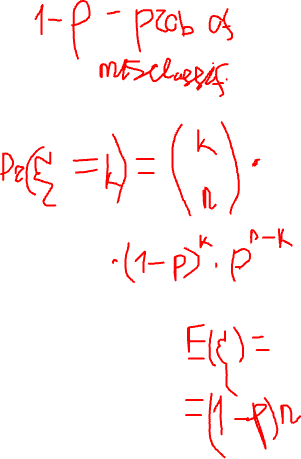 1-p - prob of
misclassif.
Pr(ξ = k) = (k n) ·
·(1-p)^k · p^n-k
E(ξ) =
= (1-p)n